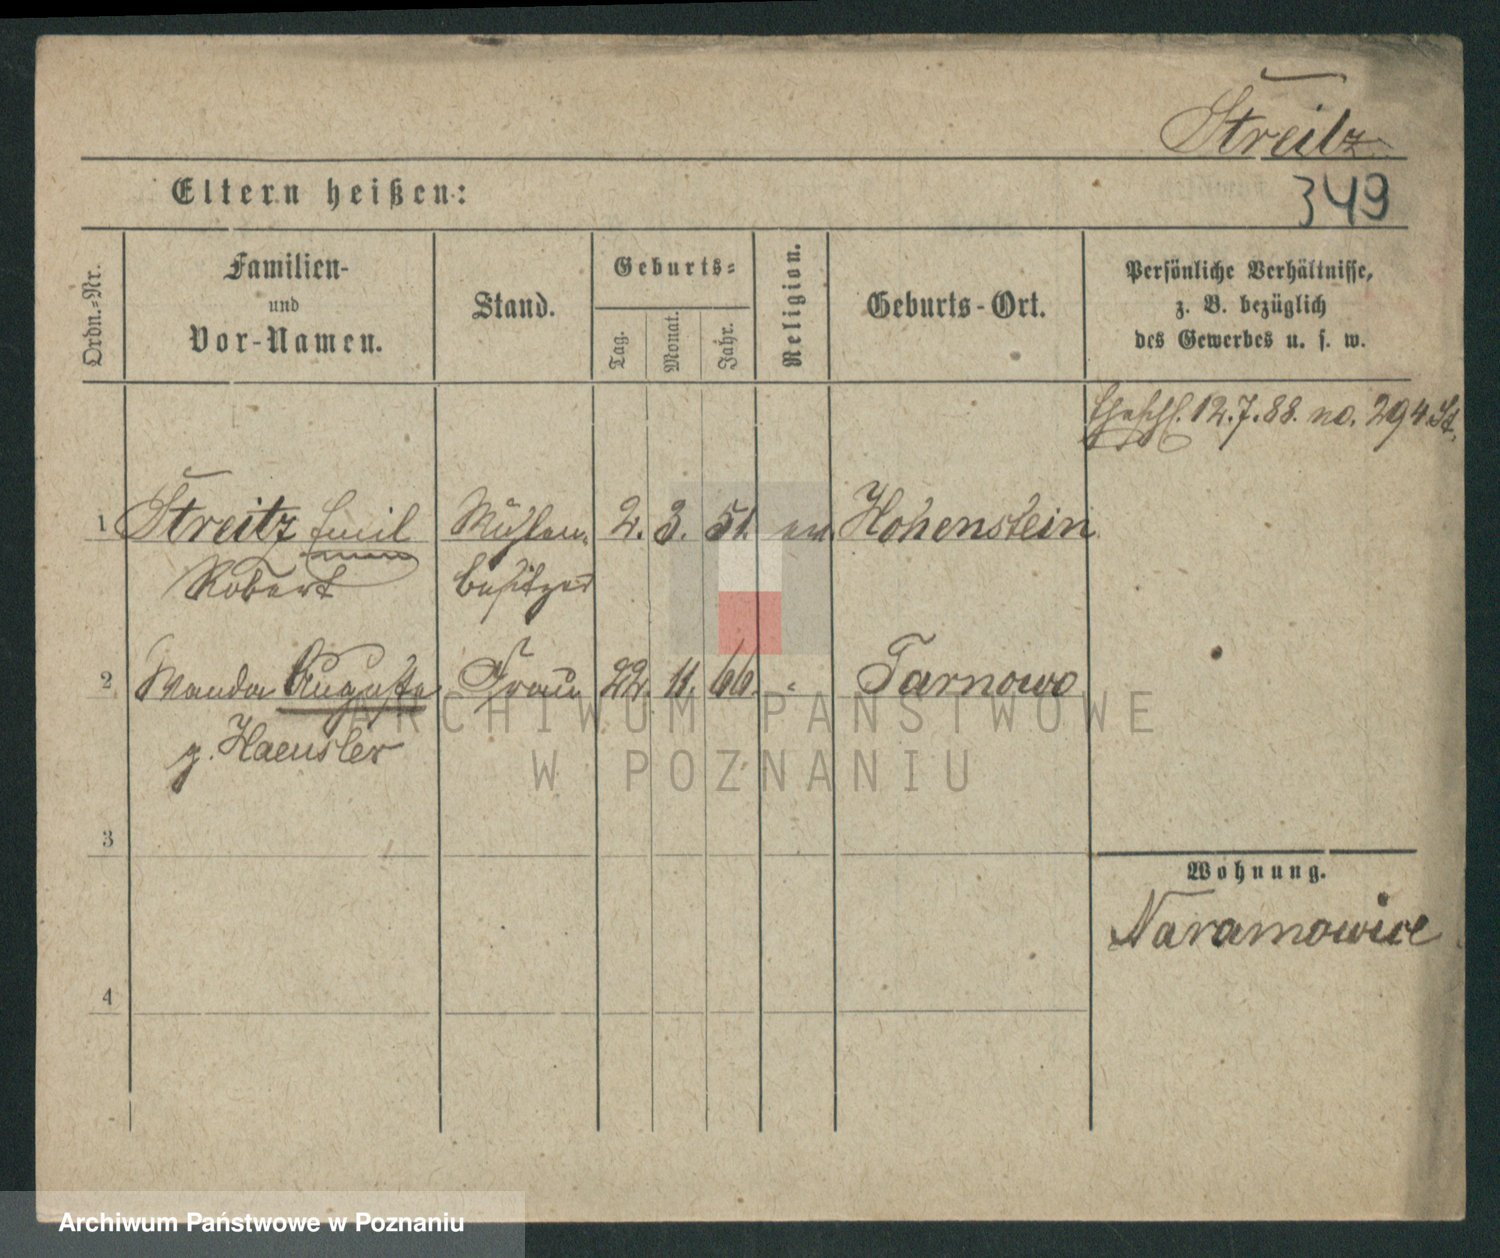 Streitz
349
Eltern heißen:
Ordn.-Nr.
Familien-
und
Vor-Namen.
Stand.
Geburts-
Tag.
Monat.
Jahr.
Religion.
Geburts-Ort.
Persönliche Verhältnisse,
z. B. bezüglich
des Gewerbes u. s. w.
12.7.88. no. 294 St.
1 Streitz Emil Mühlen- 2. 3. 51. ev. Hohenstein
Robert besitzer
2 Wanda Auguste Frau 22. 11. 66. " Tarnowo
g. Haensler
3
4
Wohnung.
Naramowice
ARCHIWUM PAŃSTWOWE
W POZNANIU
Archiwum Państwowe w Poznaniu